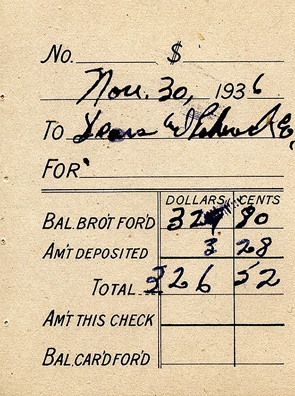 No. $
Nov. 30, 1936
To Sears
FOR
DOLLARS CENTS
BAL. BRO'T FOR'D 80
AM'T DEPOSITED 3 28
TOTAL 326 52
AM'T THIS CHECK
BAL. CAR'D FOR'D